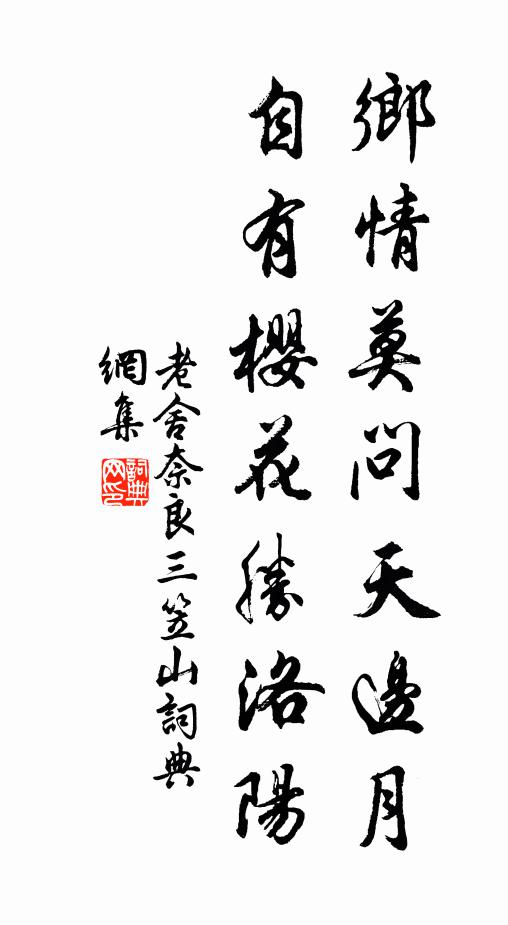 鄉情莫問天邊月
自有櫻花勝洛陽
老舍奈良三笠山詞典
網集
詞典網印